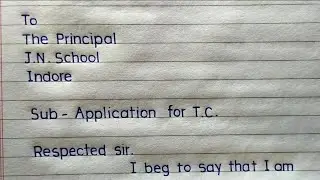 To
The Principal
J.N. School
Indore
Sub - Application for T.C.
Respected sir.
I beg to say that I am